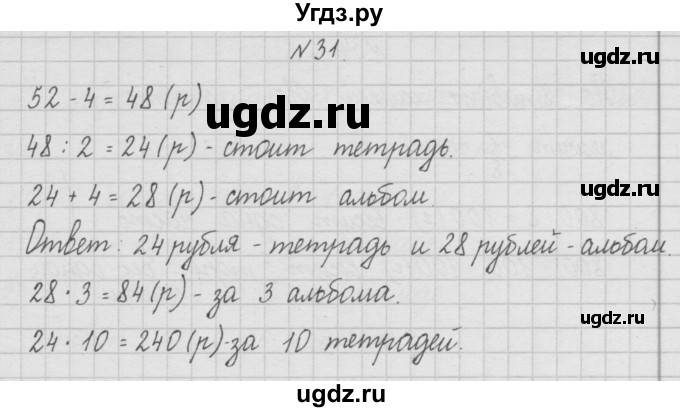 Угдз.ру
№31.
ugdz.ru
52 - 4 = 48 (р)
ugdz.ru
48 : 2 = 24 (р) - стоит тетрадь.
24 + 4 = 28 (р) - стоит альбом
ugdz.ru
Ответ: 24 рубля - тетрадь и 28 рублей - альбом.
28 · 3 = 84 (р) - за 3 альбома.
ugdz.ru
24 · 10 = 240 (р) - за 10 тетрадей.
ugdz.ru